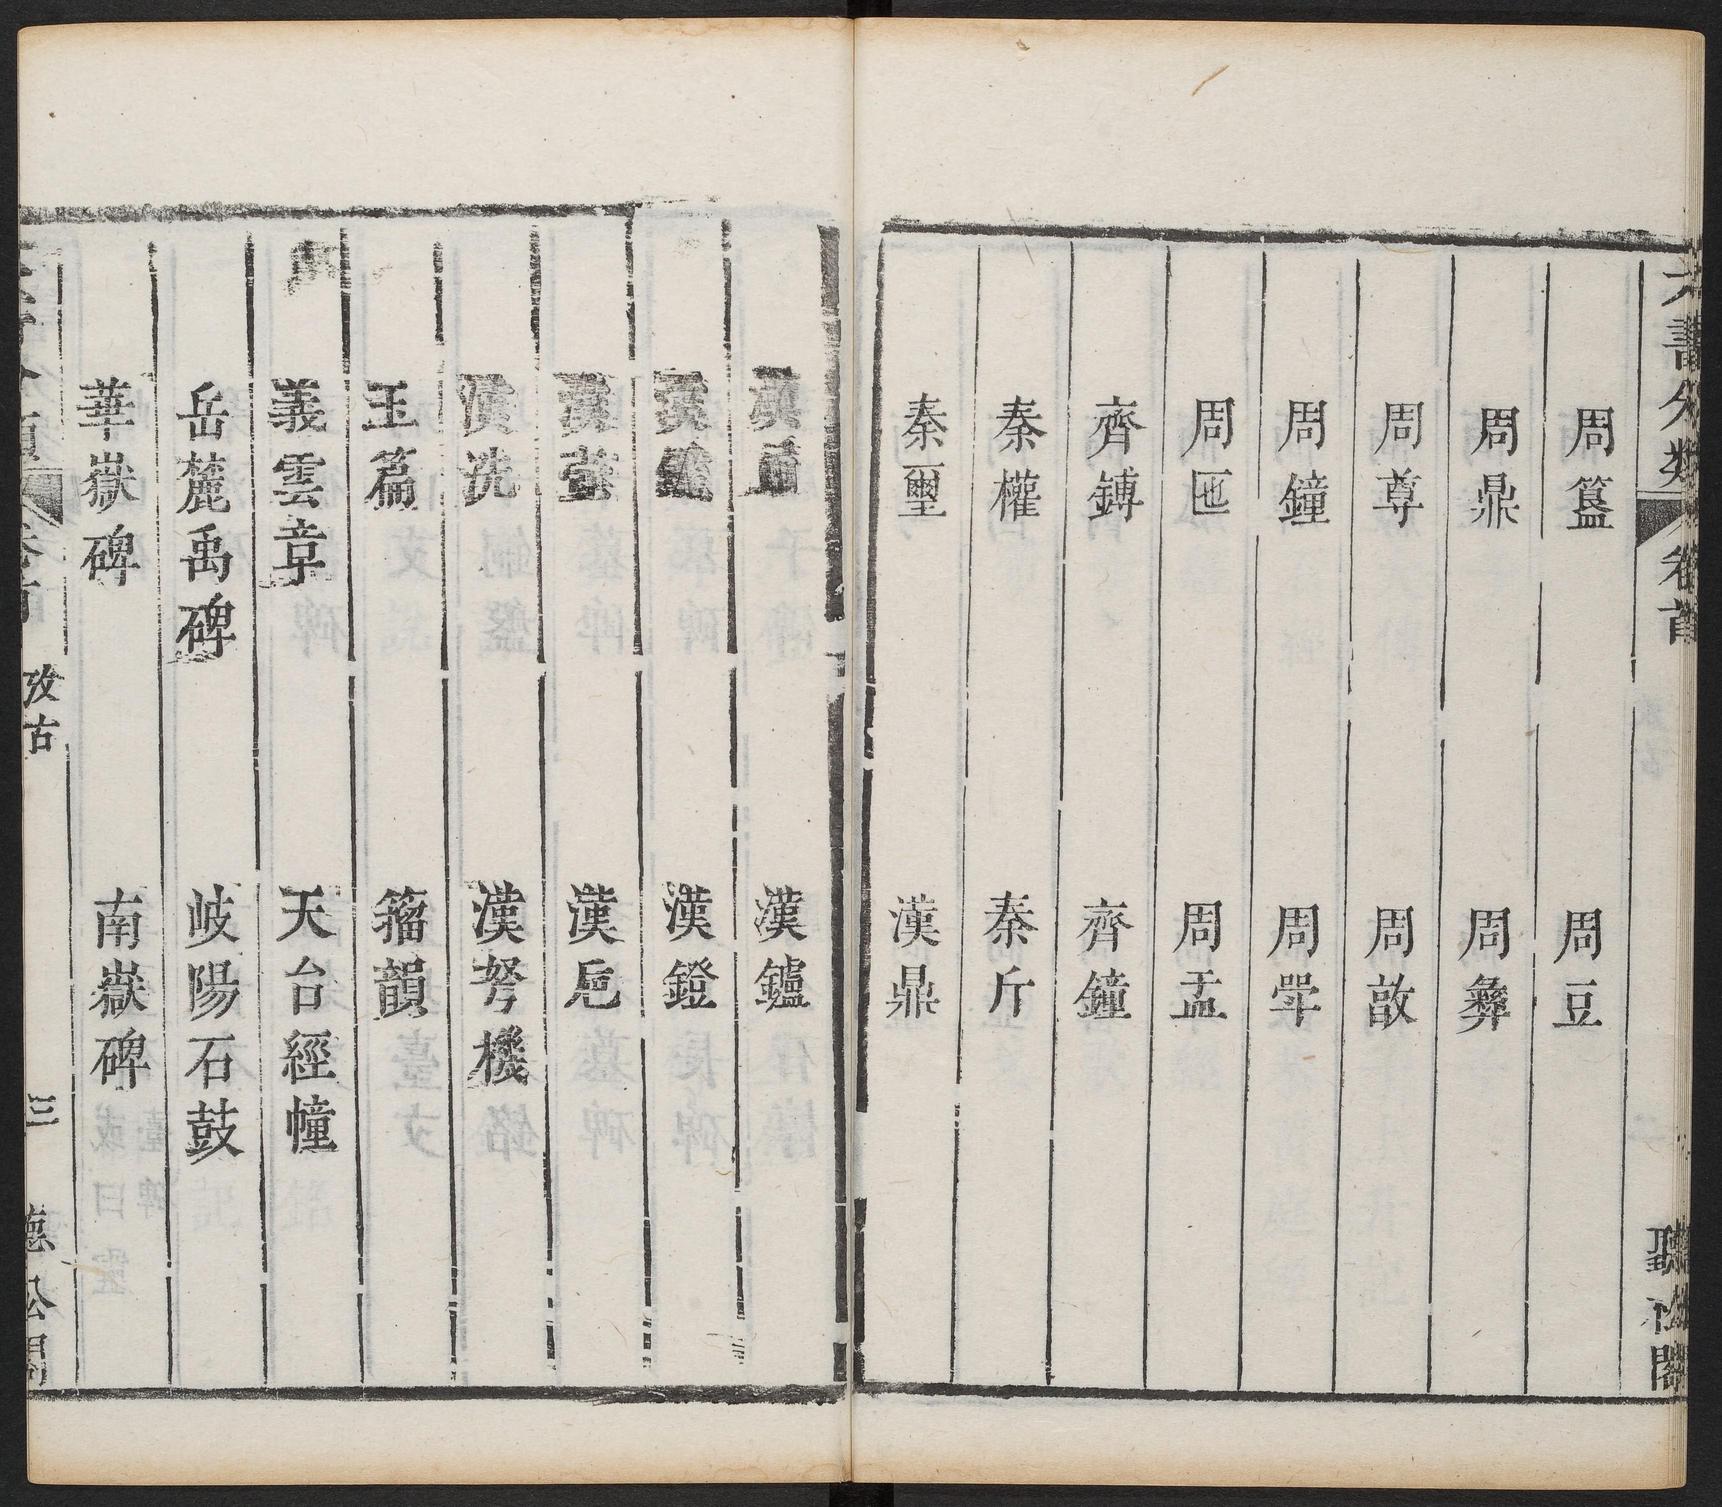 六書分類 卷首 聽松閣
周簋 周豆
周鼎 周彝
周尊 周敦
周鐘 周斝
周匜 周盂
齊鎛 齊鐘
秦權 秦斤
秦璽 漢鼎
漢 漢鑪
漢 漢鐙
漢 漢巵
漢洗 漢弩機
玉篇 籀韻
義雲章 天台經幢
岳麓禹碑 岐陽石鼓
華嶽碑 南嶽碑
攷古 三